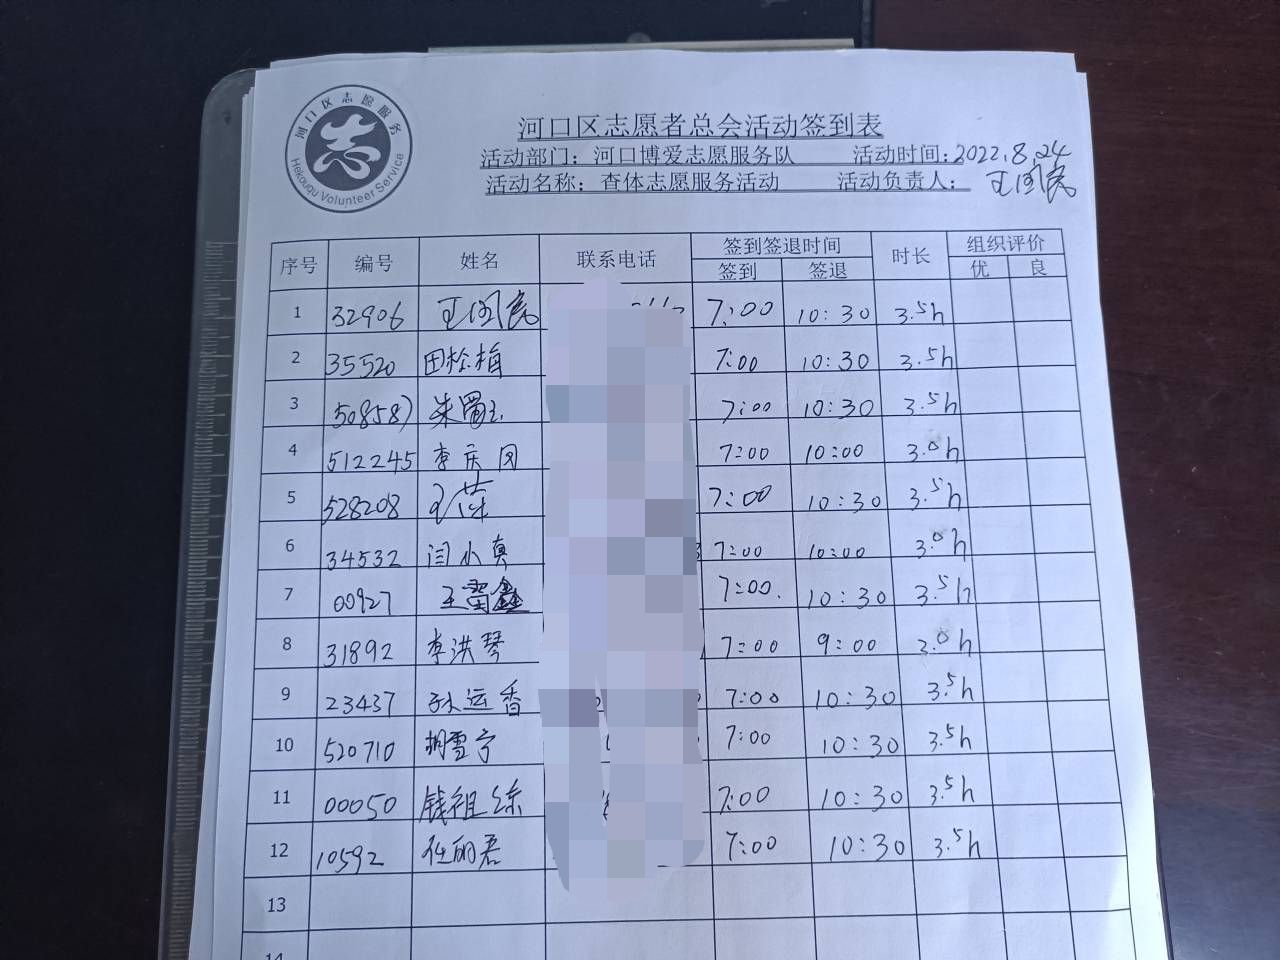 河口区志愿服务
Hekouqu Volunteer Service
河口区志愿者总会活动签到表
活动部门：河口博爱志愿服务队 活动时间：2022.8.24
活动名称：查体志愿服务活动 活动负责人：王国亮
序号 编号 姓名 联系电话 签到签退时间 时长 组织评价
签到 签退 优 良
1 32906 王国亮 7:00 10:30 3.5h
2 35520 田栓梅 7:00 10:30 3.5h
3 50858 朱 7:00 10:30 3.5h
4 512245 李庆 7:00 10:00 3.0h
5 528208 王萍 7:00 10:30 3.5h
6 34532 闫小真 7:00 10:00 3.0h
7 00927 王雷鑫 7:00 10:30 3.5h
8 31892 李洪琴 7:00 9:00 3.0h
9 23437 孙运香 7:00 10:30 3.5h
10 520710 胡雪宁 7:00 10:30 3.5h
11 00050 钱祖东 7:00 10:30 3.5h
12 10592 任丽君 7:00 10:30 3.5h
13